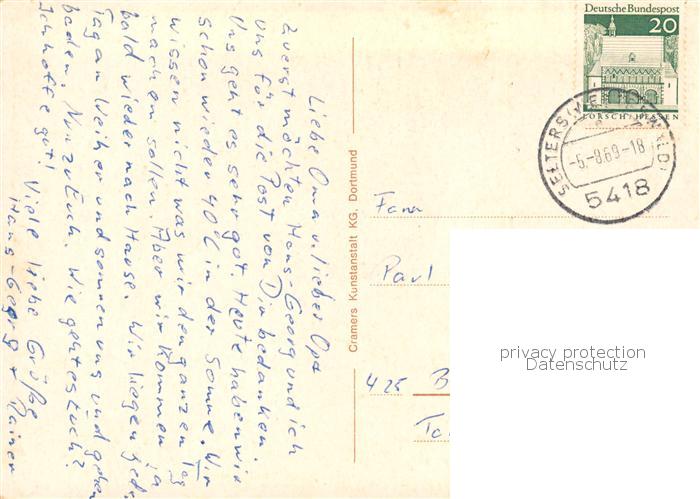 Liebe Oma u. lieber Opa
Zuerst möchten Hans-Georg und ich
uns für die Post von Dir bedanken.
Uns geht es sehr gut. Heute haben wir
schon wieder 40°C in der Sonne. Wir
wissen nicht was wir den ganzen Tag
machen sollen. Aber wir kommen ja
bald wieder nach Hause. Wir liegen jeden
Tag am Weiher und sonnen uns und gehen
baden. Nun zu Euch. Wie geht es Euch?
Ich hoffe gut! Viele liebe Grüße
Hans-Georg + Rainer
Cramers Kunstanstalt KG, Dortmund
Deutsche Bundespost
20
LORSCH/HESSEN
SELTERS (WESTERWALD)
-5.-8.69-18
5418
Fam
Paul
425 B
privacy protection
Datenschutz